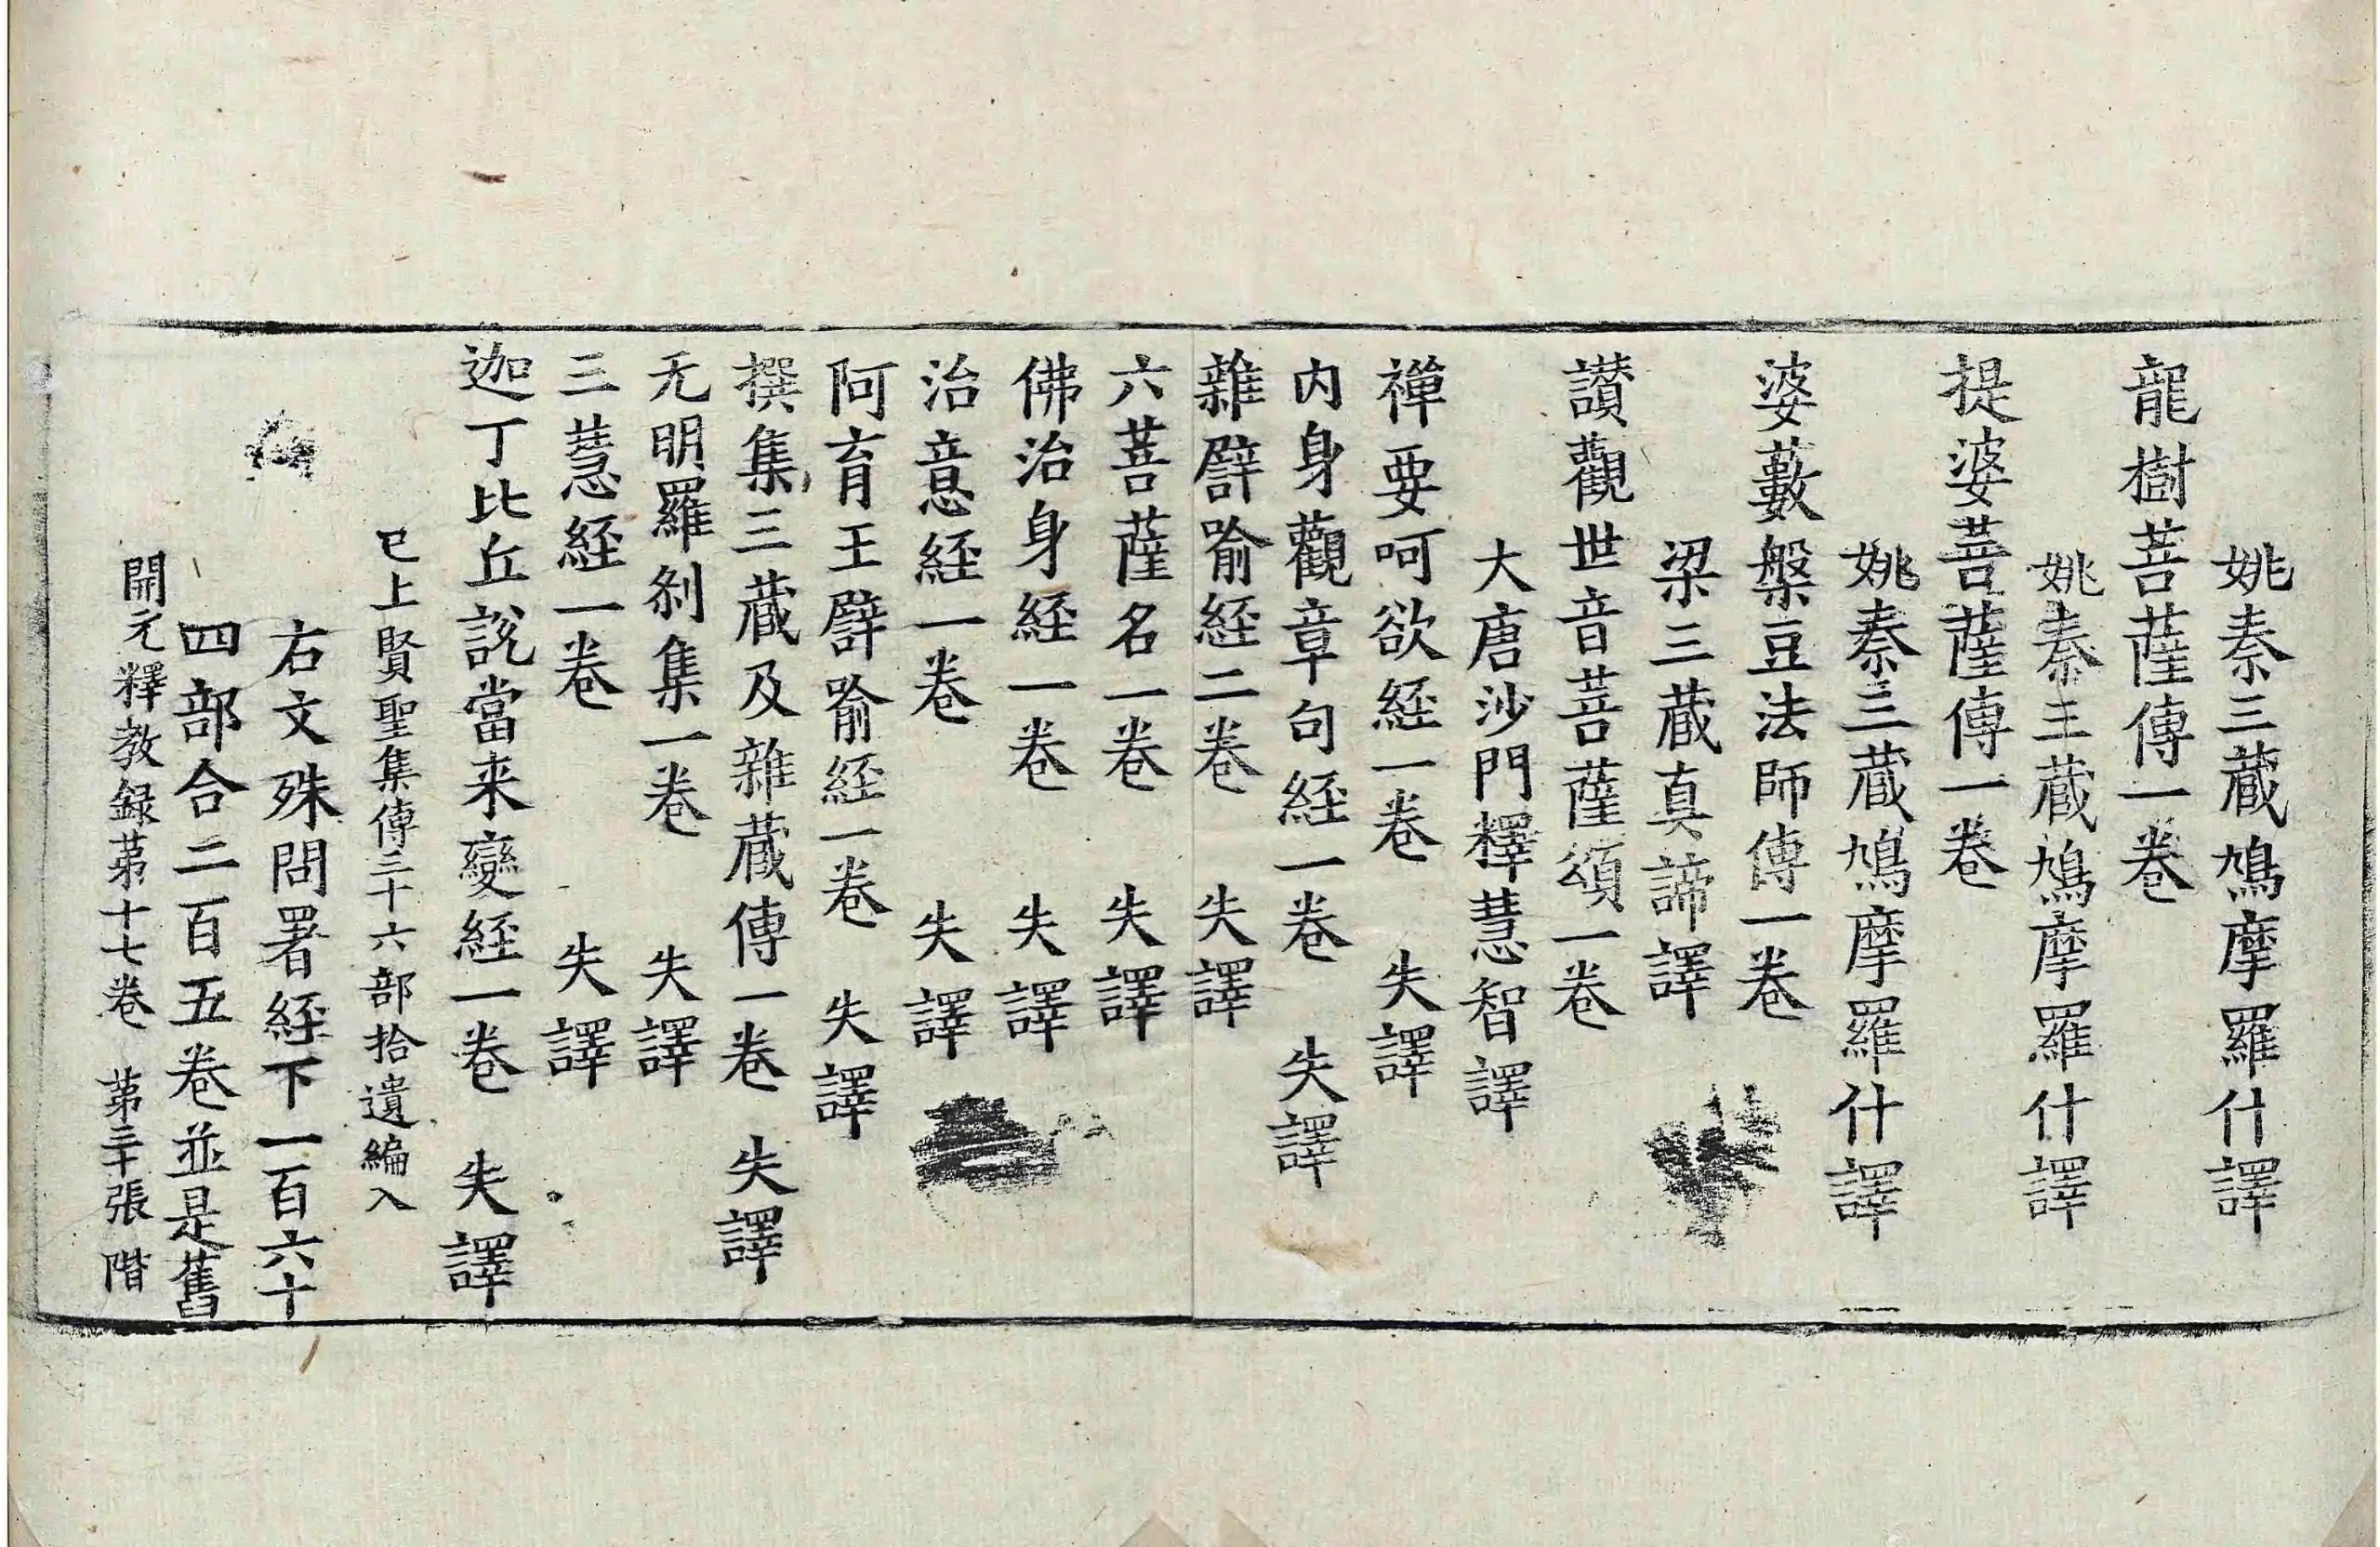 姚秦三藏鳩摩羅什譯
龍樹菩薩傳一卷
姚秦三藏鳩摩羅什譯
提婆菩薩傳一卷
姚秦三藏鳩摩羅什譯
婆藪槃豆法師傳一卷
梁三藏真諦譯
讃觀世音菩薩頌一卷
大唐沙門釋慧智譯
禪要呵欲経一卷 失譯
内身觀章句経一卷 失譯
雜譬喻経二卷 失譯
六菩薩名一卷 失譯
佛治身経一卷 失譯
治意経一卷 失譯
阿育王譬喻経一卷 失譯
撰集三藏及雜藏傳一卷 失譯
无明羅刹集一卷 失譯
三慧経一卷 失譯
迦丁比丘說當来變経一卷 失譯
已上賢聖集傳三十六部拾遺編入
右文殊問署経下一百六十
四部合二百五卷並是舊
開元釋教録第十七卷 第三十張 階